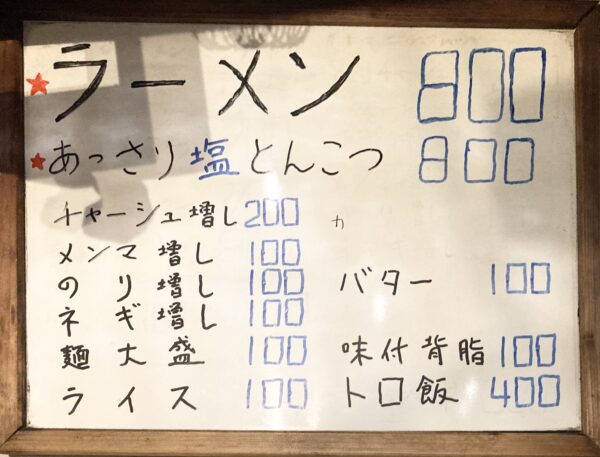 ★ラーメン 800
★あっさり塩とんこつ 800
チャーシュー増し 200
カ
メンマ増し 100
のり増し 100
バター 100
ネギ増し 100
麺大盛 100
味付背脂 100
ライス 100
トロ飯 400